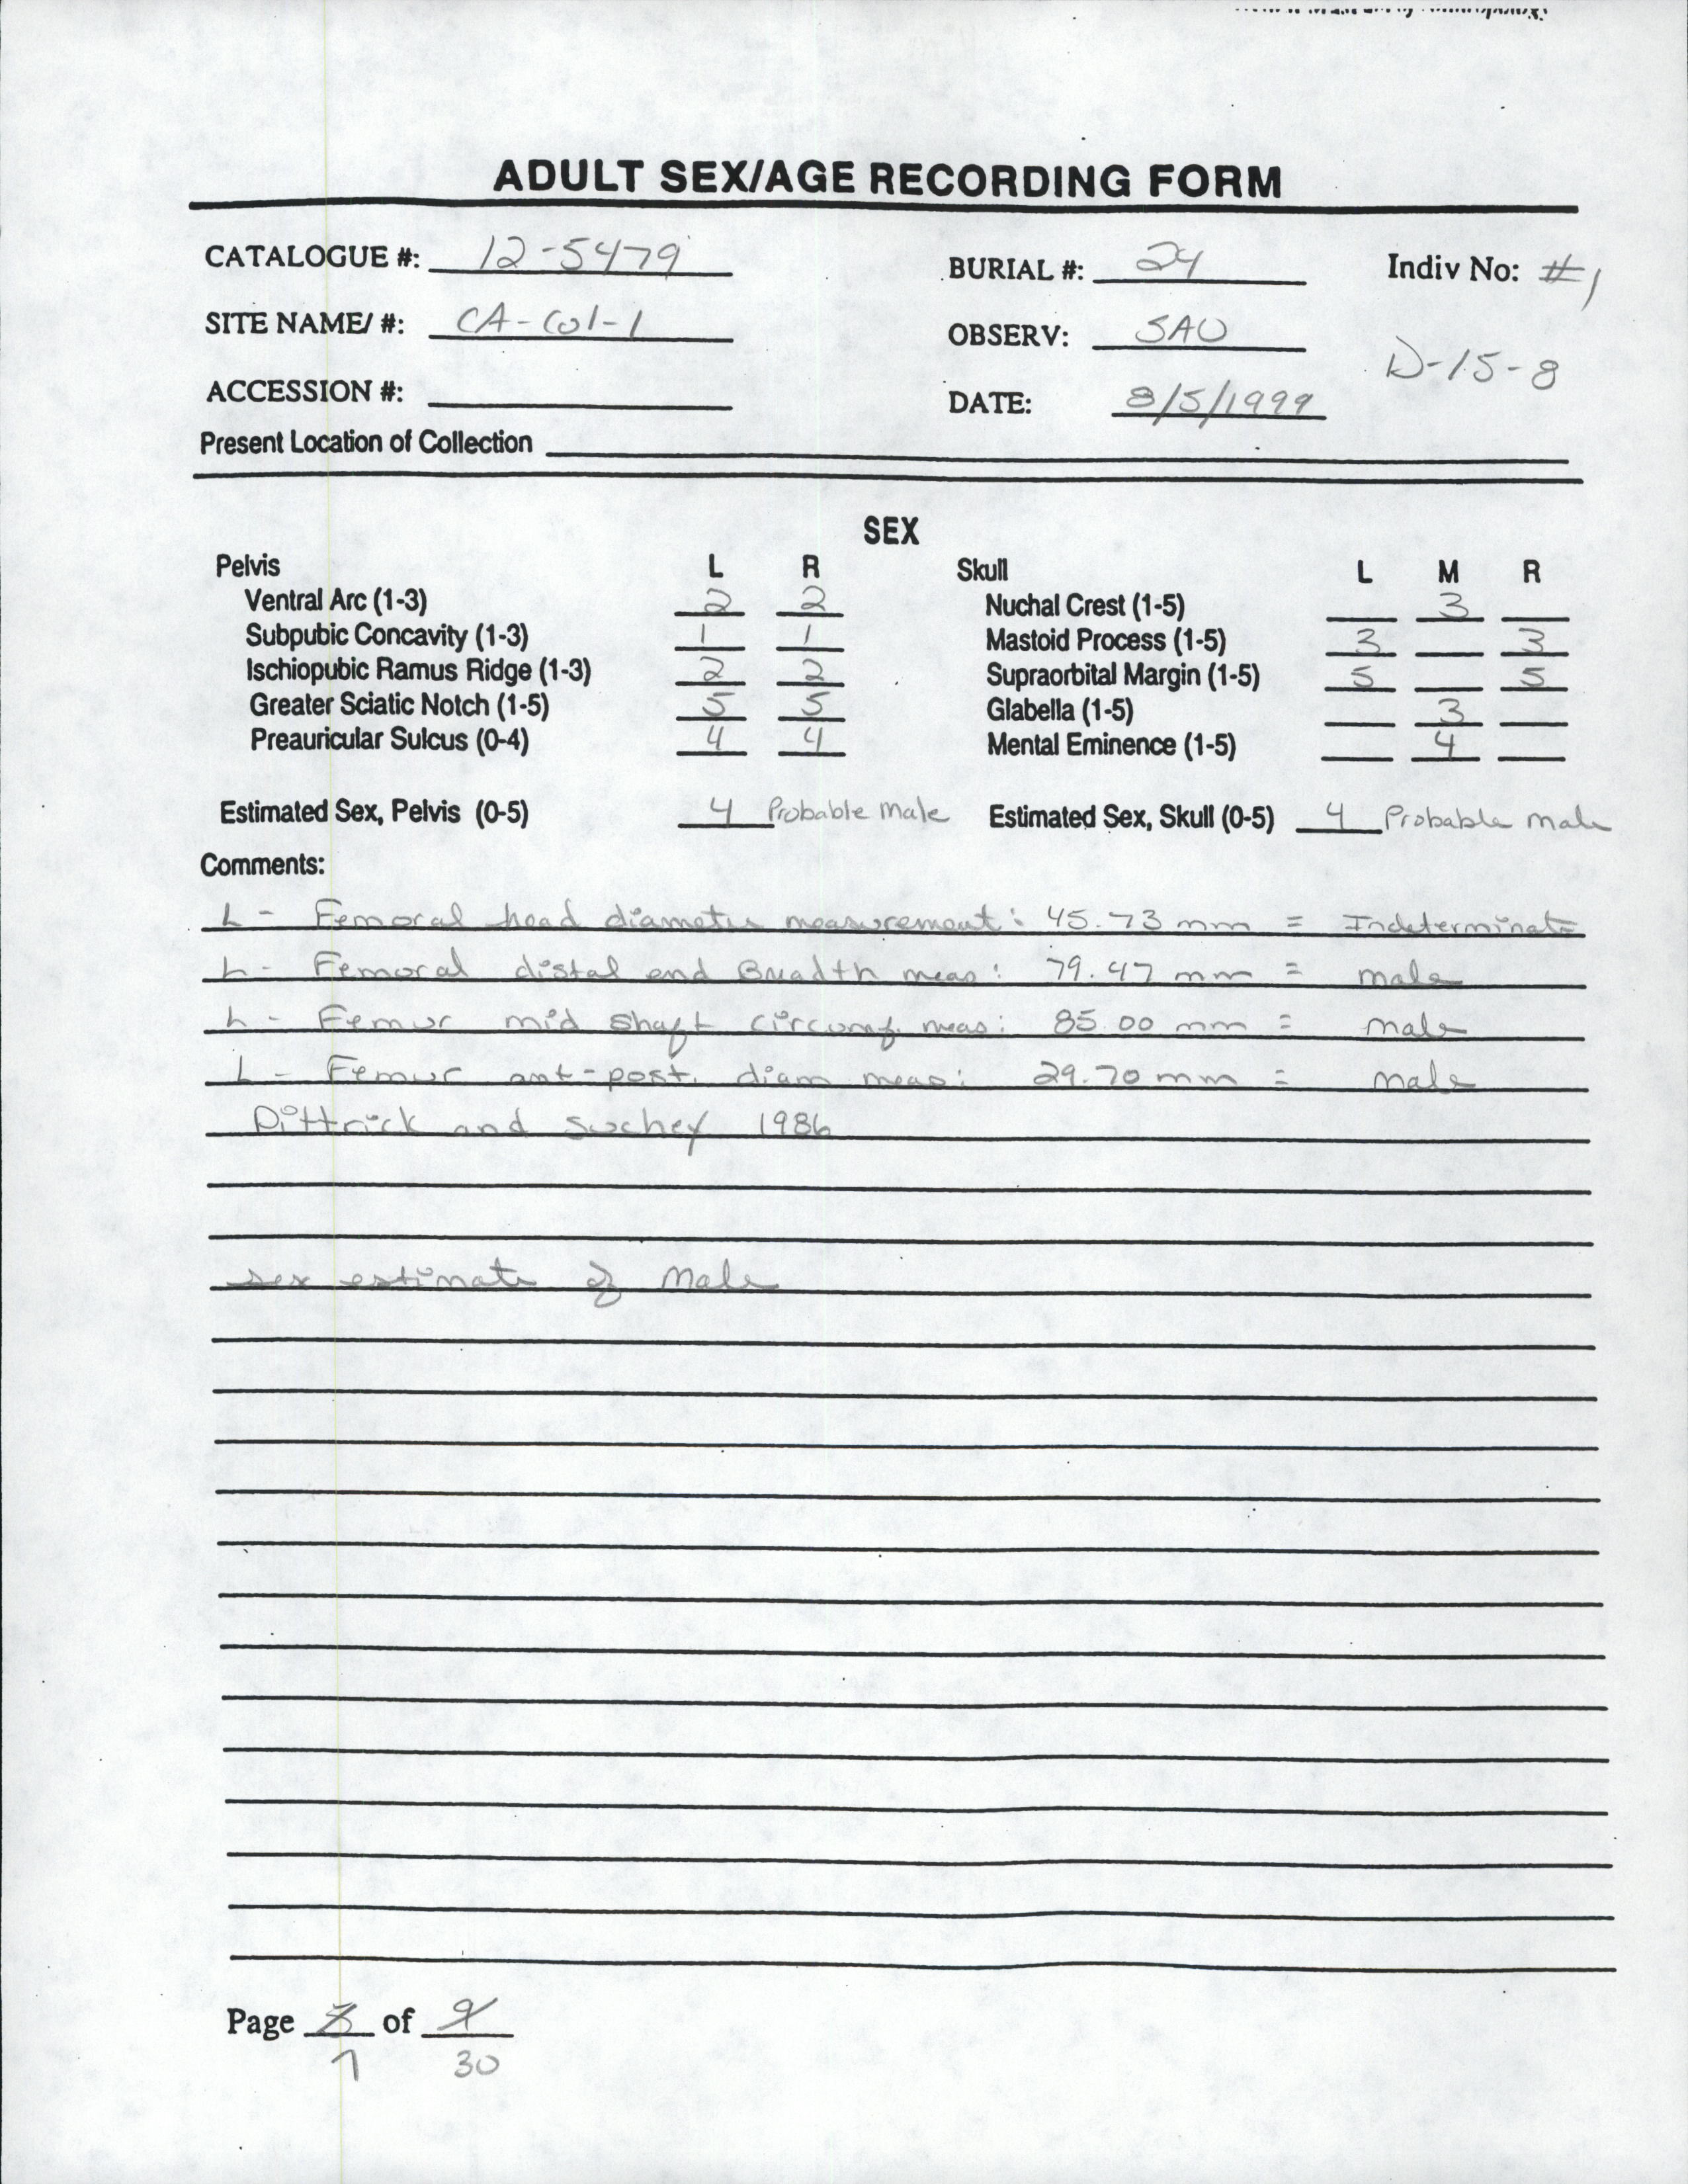 ADULT SEX/AGE RECORDING FORM
CATALOGUE #: 12-5479 BURIAL #: 24 Indiv No: #1
SITE NAME/ #: CA-Col-1 OBSERV: SAU D-15-8
ACCESSION #: DATE: 8/5/1999
Present Location of Collection
SEX
Pelvis L R Skull L M R
Ventral Arc (1-3) 2 2 Nuchal Crest (1-5) 3
Subpubic Concavity (1-3) 1 1 Mastoid Process (1-5) 3 3
Ischiopubic Ramus Ridge (1-3) 2 2 Supraorbital Margin (1-5) 5 5
Greater Sciatic Notch (1-5) 5 5 Glabella (1-5) 3
Preauricular Sulcus (0-4) 4 4 Mental Eminence (1-5) 4
Estimated Sex, Pelvis (0-5) 4 Probable Male Estimated Sex, Skull (0-5) 4 Probable male
Comments:
L - Femoral head diameter measurement: 45.73 mm = Indeterminate
L - Femoral distal end Breadth meas: 79.47 mm = male
L - Femur mid shaft circumf. meas: 85.00 mm = male
L - Femur ant-post. diam meas: 29.70 mm = male
Dittrick and Suchey 1986
sex estimate of Male
Page 3 of 9
7 30